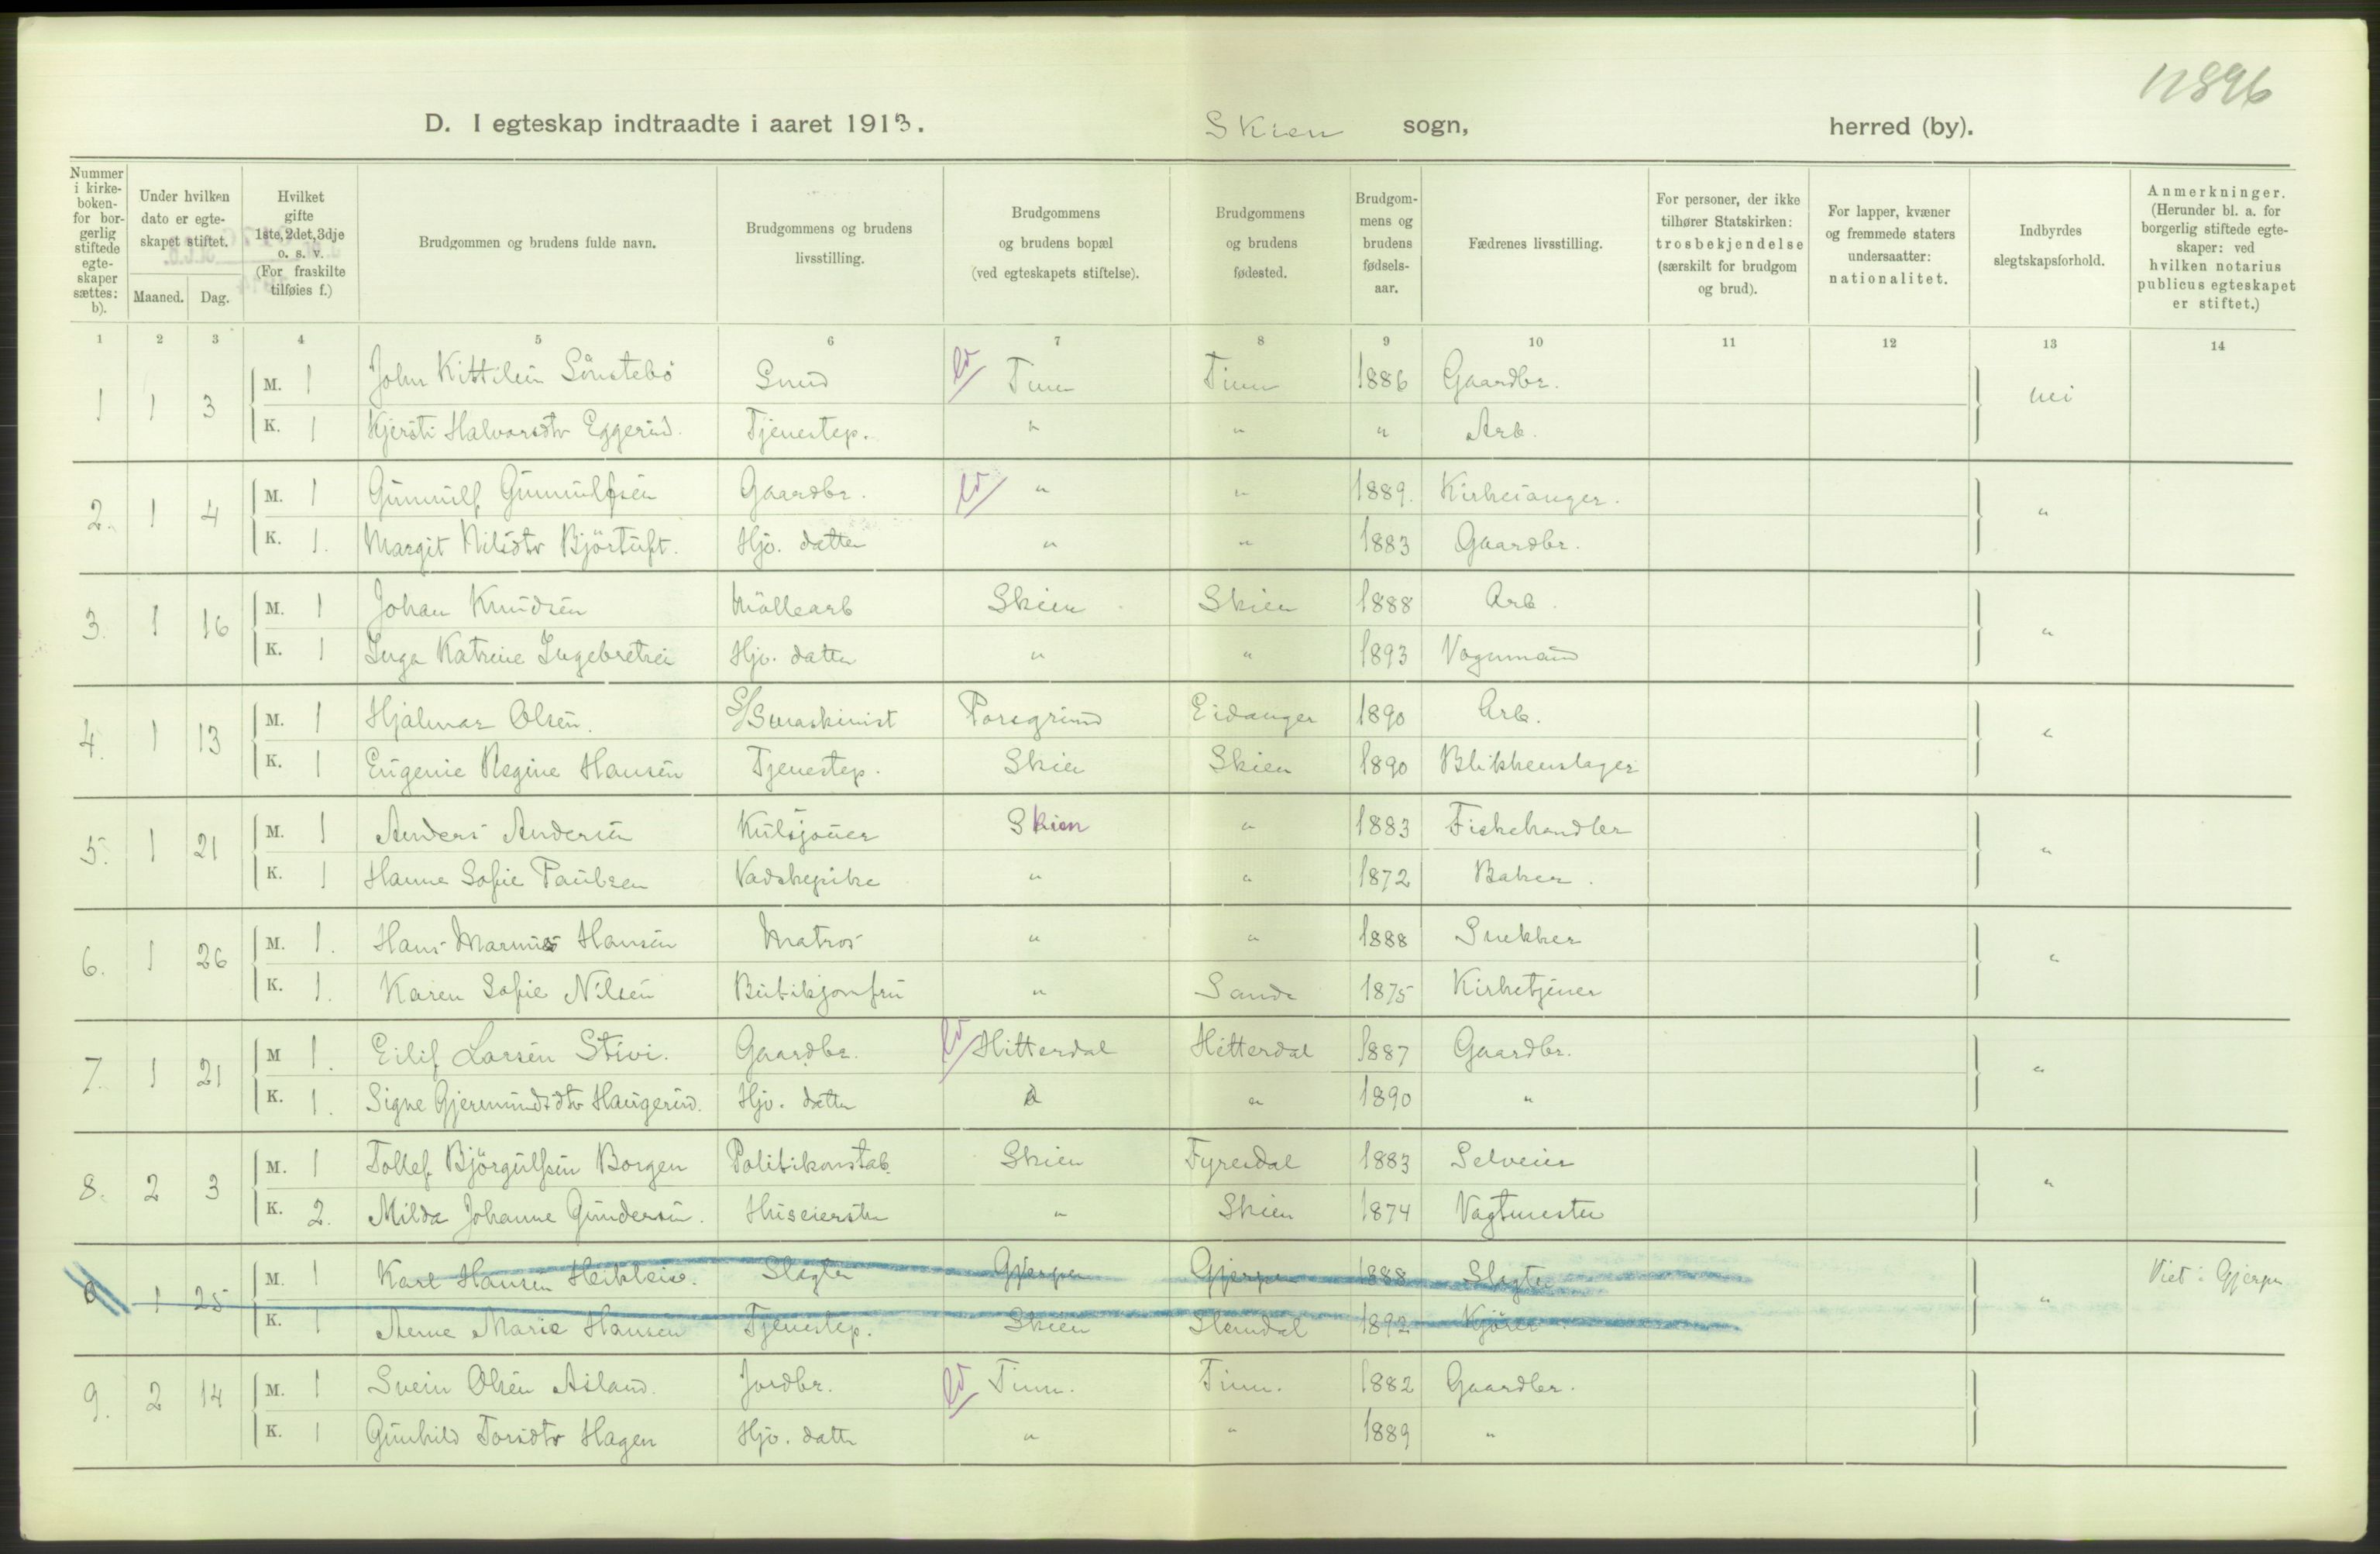 11896
D. I egteskap indtraadte i aaret 1913. Skien sogn, herred (by).
Nummer i kirke-boken- for bor-gerlig stiftede egte-skaper sættes: b).
Under hvilken dato er egte-skapet stiftet.
Maaned. Dag.
Hvilket gifte 1ste, 2det, 3dje o. s. v. (For fraskilte tilføies f.)
Brudgommen og brudens fulde navn.
Brudgommens og brudens livsstilling.
Brudgommens og brudens bopæl (ved egteskapets stiftelse).
Brudgommens og brudens fødested.
Brudgom-mens og brudens fødsels-aar.
Fædrenes livsstilling.
For personer, der ikke tilhører Statskirken: trosbekjendelse (særskilt for brudgom og brud).
For lapper, kvæner og fremmede staters undersaatter: nationalitet.
Indbyrdes slegtskapsforhold.
Anmerkninger. (Herunder bl. a. for borgerlig stiftede egte-skaper: ved hvilken notarius publicus egteskapet er stiftet.)
1 2 3 4 5 6 7 8 9 10 11 12 13 14
1 1 3 M. 1 John Kittilsen Sönstebö Smed Tinn Tinn 1886 Gaardbr. nei
K. 1 Kjersti Halvorsdtr Eggerud. Tjenestep. " " " Arb.
2. 1 4 M. 1 Gunnulf Gunnulfsen Gaardbr. " " 1889. Kirkesanger. "
K. 1. Margit Nilsdtr Björtuft. Hjv. datter " " 1883 Gaardbr.
3. 1 16 M. 1 Johan Knudsen Möllearb Skien Skien 1888 Arb. "
K. 1 Inga Katrine Ingebretsen Hjv. datter " " 1893 Vognmand
4. 1 13 M. 1 Hjalmar Olsen. S/Smaskinist Porsgrund Eidanger 1890 Arb. "
K. 1 Eugenie Regine Hansen Tjenestep. Skien Skien 1890 Blikkenslager
5. 1 21 M. 1 Anders Andersen Kulsjouer Skien " 1883 Fiskehandler "
K. 1 Hanna Sofie Paulsen Vadskepike " " 1872 Baker.
6. 1 26 M. 1. Hans Marius Hansen Matros " " 1888 Snekker "
K. 1. Karen Sofie Nilsen Butikjomfru " Sande 1875 Kirketjener
7. 1 21 M 1. Eilif Larsen Stivi. Gaardbr. Hitterdal Hitterdal 1887 Gaardbr. "
K. 1. Signe Gjermundsdtr Haugerud. Hjv. datter " " 1890 "
8. 2 3 M. 1 Tollef Björgulfsen Borgen Politikonstab. Skien Fyresdal 1883 Selveier "
K. 2. Milda Johanne Gundersen. Huseierske " Skien 1874 Vagtmester
9 1 25 M. 1 Karl Hansen Slagter Gjerpen Gjerpen 1888 Slagter " Viet i Gjerpen
K. 1 Anna Marie Hansen Tjenestep. Skien Slemdal 1892 Kjörer
9. 2 14 M. 1 Svein Olsen Asland. Jordbr. Tinn. Tinn. 1882 Gaardbr.
K. 1 Gunhild Torsdtr Hagen Hjv. datter " " 1889 "